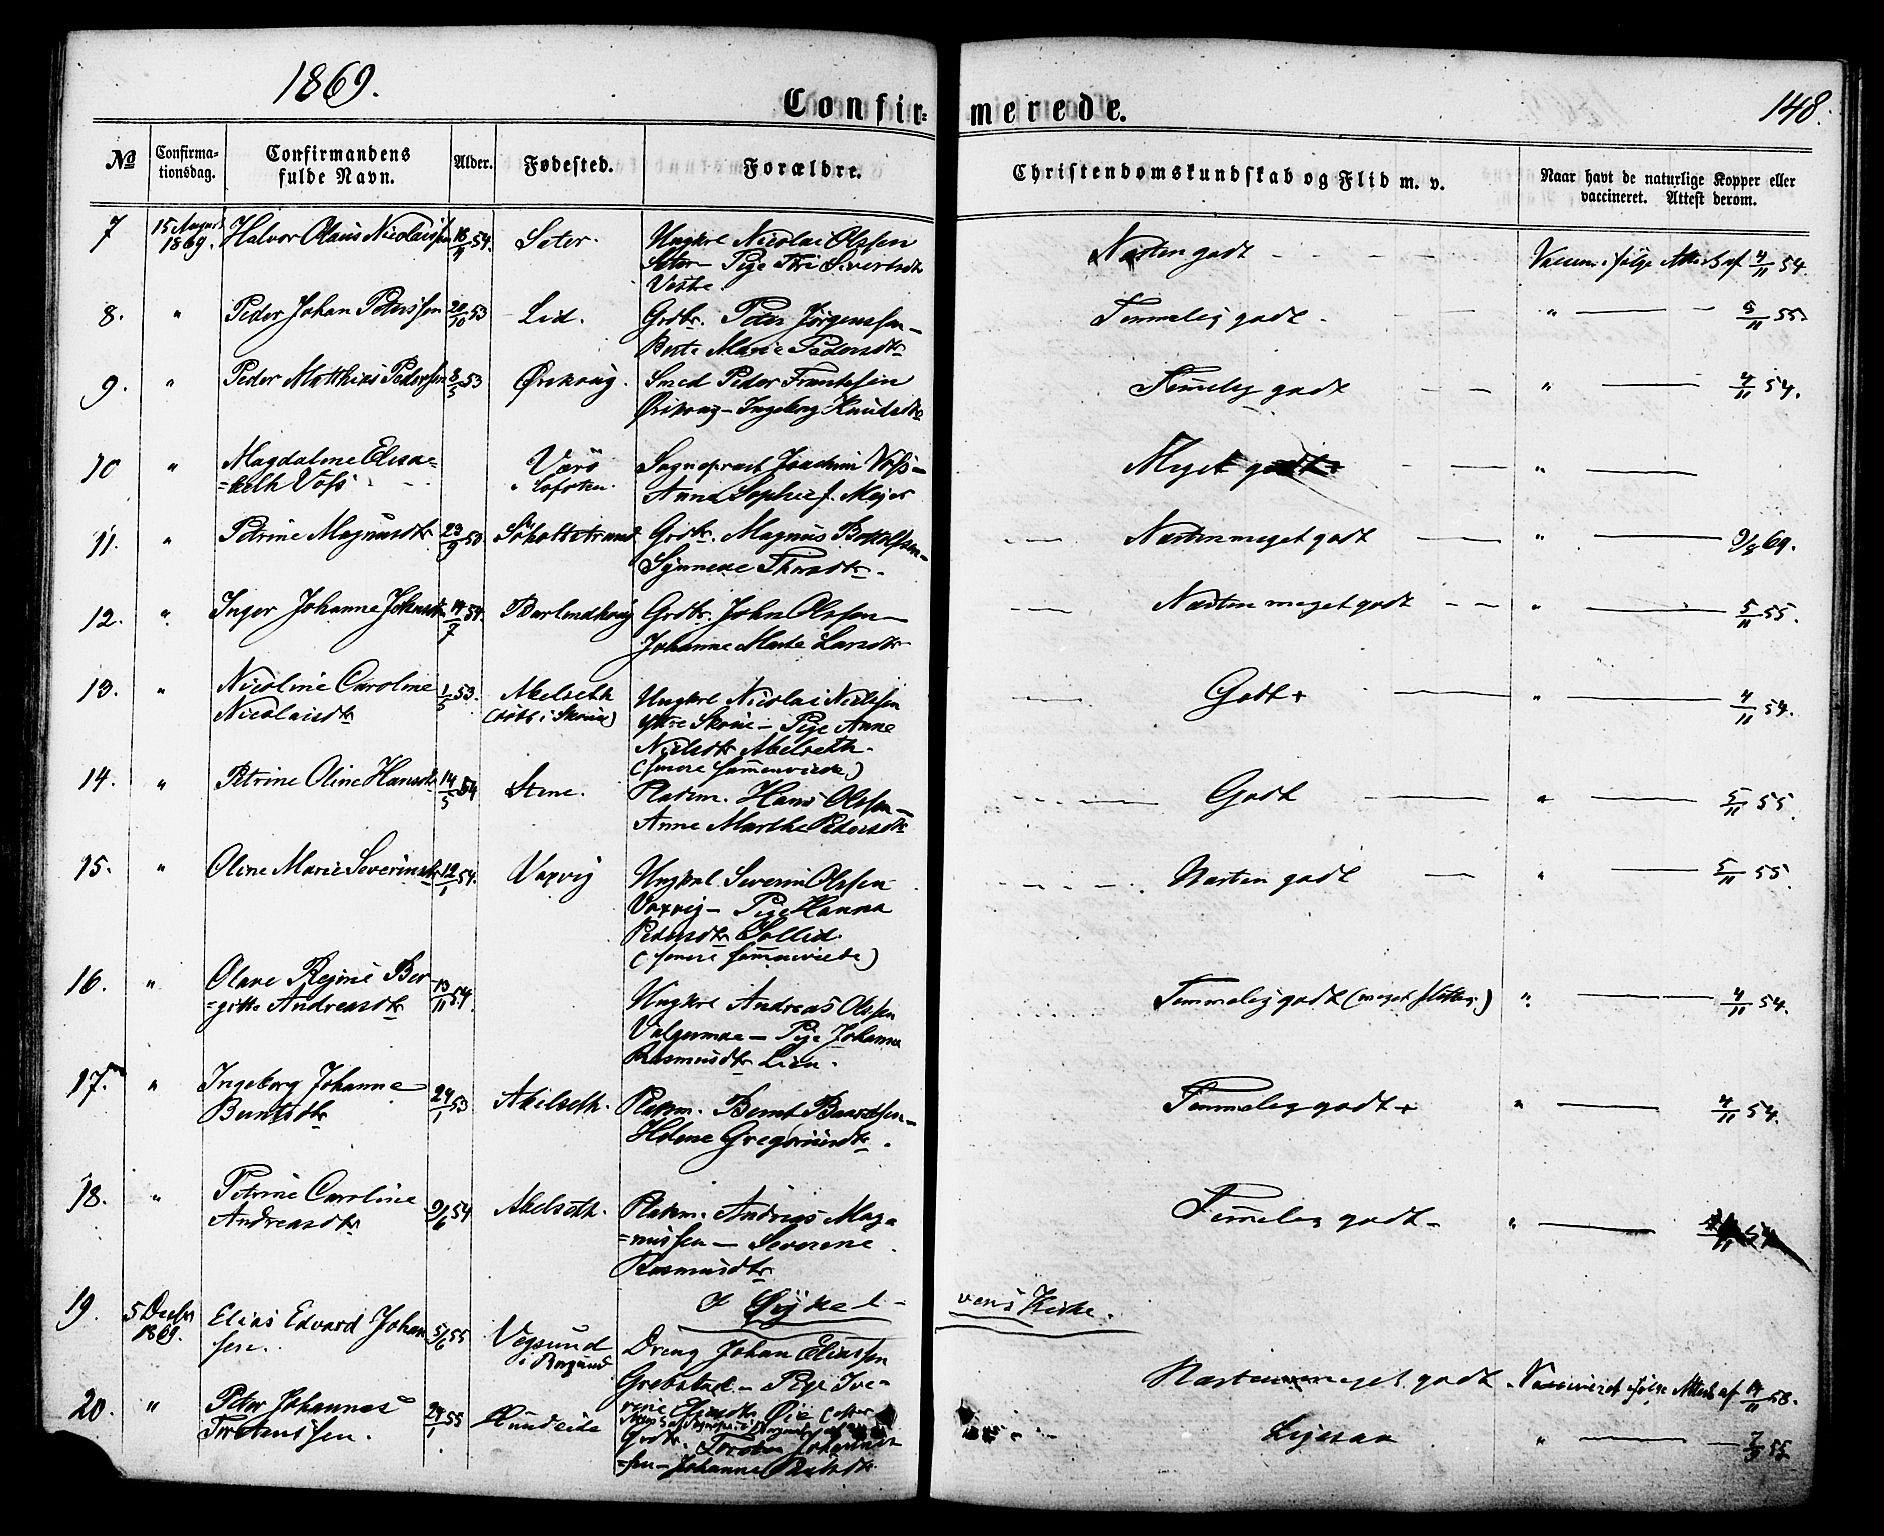 1869.
Confir-
merede.
148.
No
Confirma-
tionsdag.
Confirmandens
fulde Navn.
Alder.
Fødested.
Forældre.
Christendomskundskab og Flid m. v.
Naar havt de naturlige Kopper eller
vaccineret. Attest derom.
7 15 August 1869. Halvor Olaus Nicolaissen 54. Seter. Ungkrl Nicolai Olssen
Seter – Pige Sivertsdtr
Vestre
Næsten godt – – – Vaccin. ifølge Attest af 4/11 54.
8. " Peder Johan Peterssen 53 Lid. Grdbr. Peter Jørgenssen –
Berte Marie Pedersdtr
Temmelig godt – – " – 5/11 55.
9. " Peder Matthias Pederssen 8/5 53 Ørskoug. Smed Peder Frantssen
Ørskoug – Ingeborg Knudsdtr
Temmelig godt – – " – 4/11 54.
10 " Magdalene Elisa=
=beth Voss Værø
i Lofoten.
Sogneprest Joachim Voss –
Anna Sophie f. Meyer
Meget godt – – " –
11. " Petrine Magnusdtr 23/9 53. Grdbr. Magnus
Synneve
– Næsten meget godt – " – 9/8 69.
12. " Inger Johanne Johnsdtr 14/7 54. Grdbr. John Olssen –
Johanne Marte Larsdtr
– – Næsten meget godt – – " – 5/11 55.
13. " Nicoline Caroline
Nicolaisdtr
1/5 53. Akelseth
(døbt i Skouie)
Ungkrl Nicolai Nielssen
Yttre Skouie – Pige Anne
Nielsdtr Akelseth.
(senere sammenviede)
– Godt + – " – 4/11 54.
14. " Petrine Oline Hansdtr 14/5 54 Stene. Pladsm. Hans Olssen –
Anne Marthe Pedersdtr
– – – Godt – – " – 5/11 55.
15. " Oline Marie Severinsdtr 12/1 54. Vaxvig Ungkrl. Severin Olssen
Vaxvig – Pige Hanna
Pedersdtr Sollid.
(senere sammenviede)
– – – Næsten godt – " – 5/11 55
16. " Olave Regine Ber=
=gitte Andreasdtr
13/11 54. Ungkrl Andreas Olssen
Valgermoe – Pige Johanne
Rasmusdtr Lien.
Temmelig godt (meget flittig.) " – 4/11 54.
17. " Ingeborg Johanne
Berntsdtr
24/1 53 Akelseth. Pladsm. Bernt Baardsen –
Helene Gregoriusdtr.
Temmelig godt + " – 4/11 54.
18. " Petrine Caroline
Andreasdtr
9/6 54 Akelseth. Pladsm. Andreas Mag=
=nussen – Severine
Rasmusdtr
Temmelig godt – " – 54.
I Sykel=
vens Kirke.
19. 5 Decbr 1869. Elias Edvard Johan
sen.
5/6 55 Vegsund
i Borgund
Dreng Johan Eliassen
Grebstad – Pige Ive=
rine Eliasdtr Øie
Næsten meget godt – Vaccineret ifølge Attest af 58.
20. " Peter Johannes
24/1 55 Grdbr.
=sen – Johanne
" – – 55